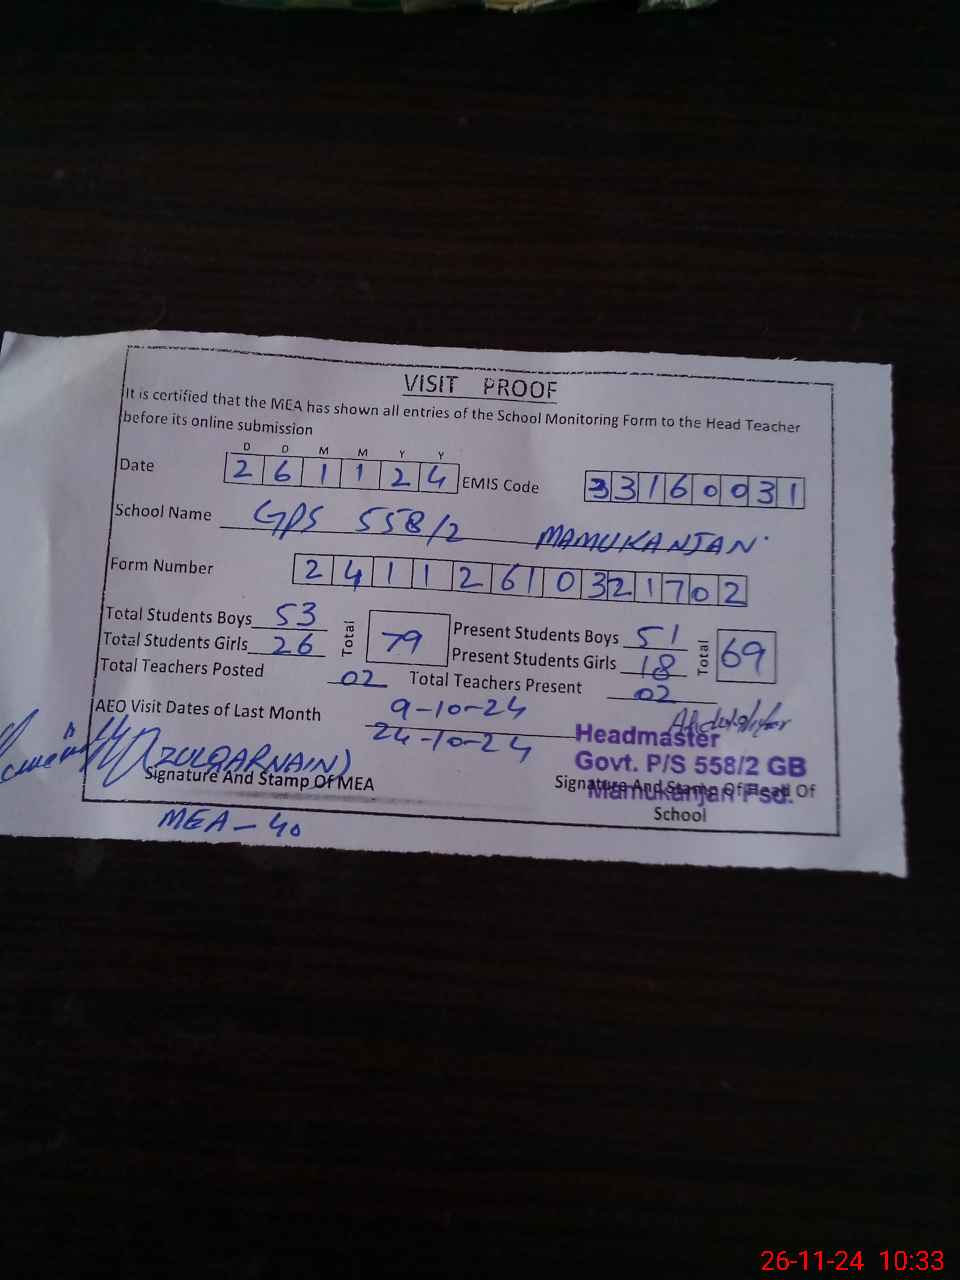 VISIT PROOF
It is certified that the MEA has shown all entries of the School Monitoring Form to the Head Teacher
before its online submission
D D M M Y Y
Date 2 6 1 1 2 4 EMIS Code 3 3 1 6 0 0 3 1
School Name GPS 558/2 MAMUKANJAN
Form Number 2 4 1 1 2 6 1 0 3 2 1 7 0 2
Total Students Boys 53 Total 79 Present Students Boys 51 Total 69
Total Students Girls 26 Present Students Girls 18
Total Teachers Posted 02 Total Teachers Present 02
AEO Visit Dates of Last Month 9-10-24
24-10-24
Headmaster
Govt. P/S 558/2 GB
Mamukanjan Fsd.
(ZULQARNAIN)
Signature And Stamp Of MEA
Signature And Stamp Of Head Of
School
MEA-40
26-11-24 10:33